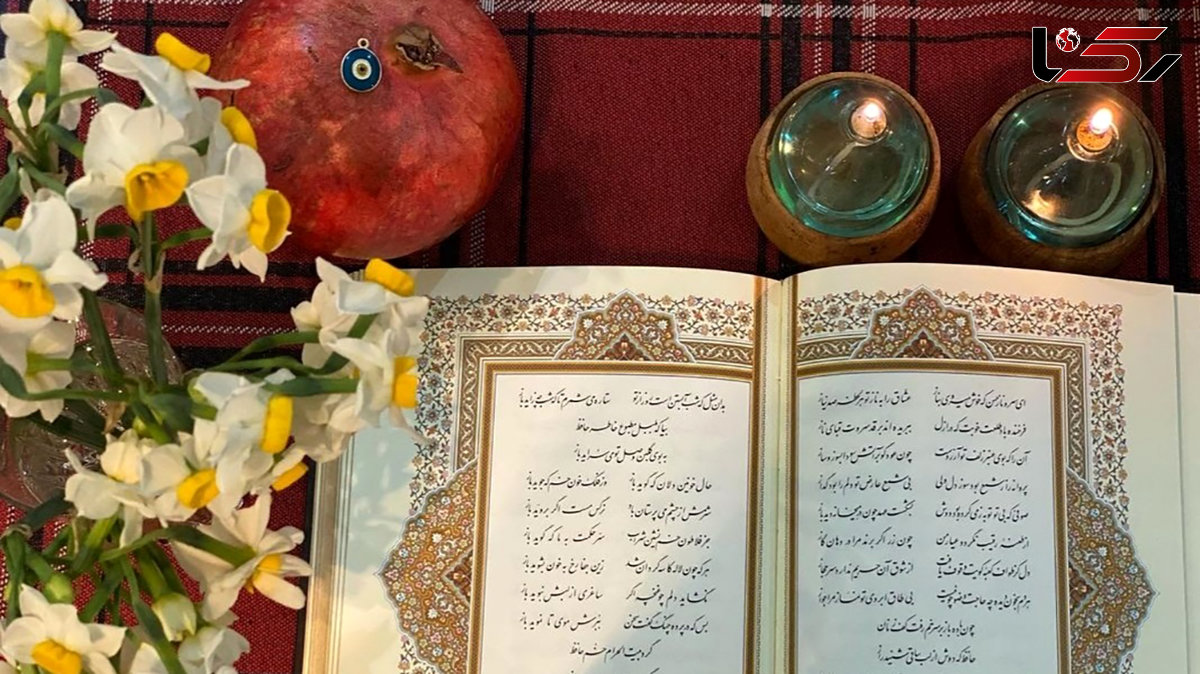 رکنا
ای سرو ناز حسن که خوش می‌روی به ناز عشاق را به ناز تو هر لحظه صد نیاز
فرخنده باد طلعت خوبت که در ازل ببریده‌اند بر قد سروت قبای ناز
آن را که بوی عنبر زلف تو آرزوست چون عود گو بر آتش سودا بسوز و ساز
پروانه را ز شمع بود سوز دل ولی بی شمع عارض تو دلم را بود گداز
صوفی که بی تو توبه ز می کرده بود دوش بشکست عهد چون در میخانه دید باز
از طعنه رقیب نگردد عیار من چون زر اگر برند مرا در دهان گاز
دل کز طواف کعبه کویت وقوف یافت از شوق آن حریم ندارد سر حجاز
هر دم به خون دیده چه حاجت وضو چو نیست بی طاق ابروی تو نماز مرا جواز
چون باده باز بر سر خم رفت کف زنان
حافظ که دوش از لب ساقی شنید راز
بدان مثل که شب آبستن است روز از تو ستاره می‌شمرم تا که شب چه زاید باز
بیا که بلبل مطبوع خاطر حافظ
به بوی گلبن وصل تو می‌سراید باز
حال خونین دلان که گوید باز وز فلک خون خم که جوید باز
شرمش از چشم می پرستان باد نرگس مست اگر بروید باز
جز فلاطون خم نشین شراب سر حکمت به ما که گوید باز
هر که چون لاله کاسه گردان شد زین جفا رخ به خون بشوید باز
نگشاید دلم چو غنچه اگر ساغری از لبش نبوید باز
بس که در پرده چنگ گفت سخن ببرش موی تا نموید باز
گرد بیت الحرام خم حافظ